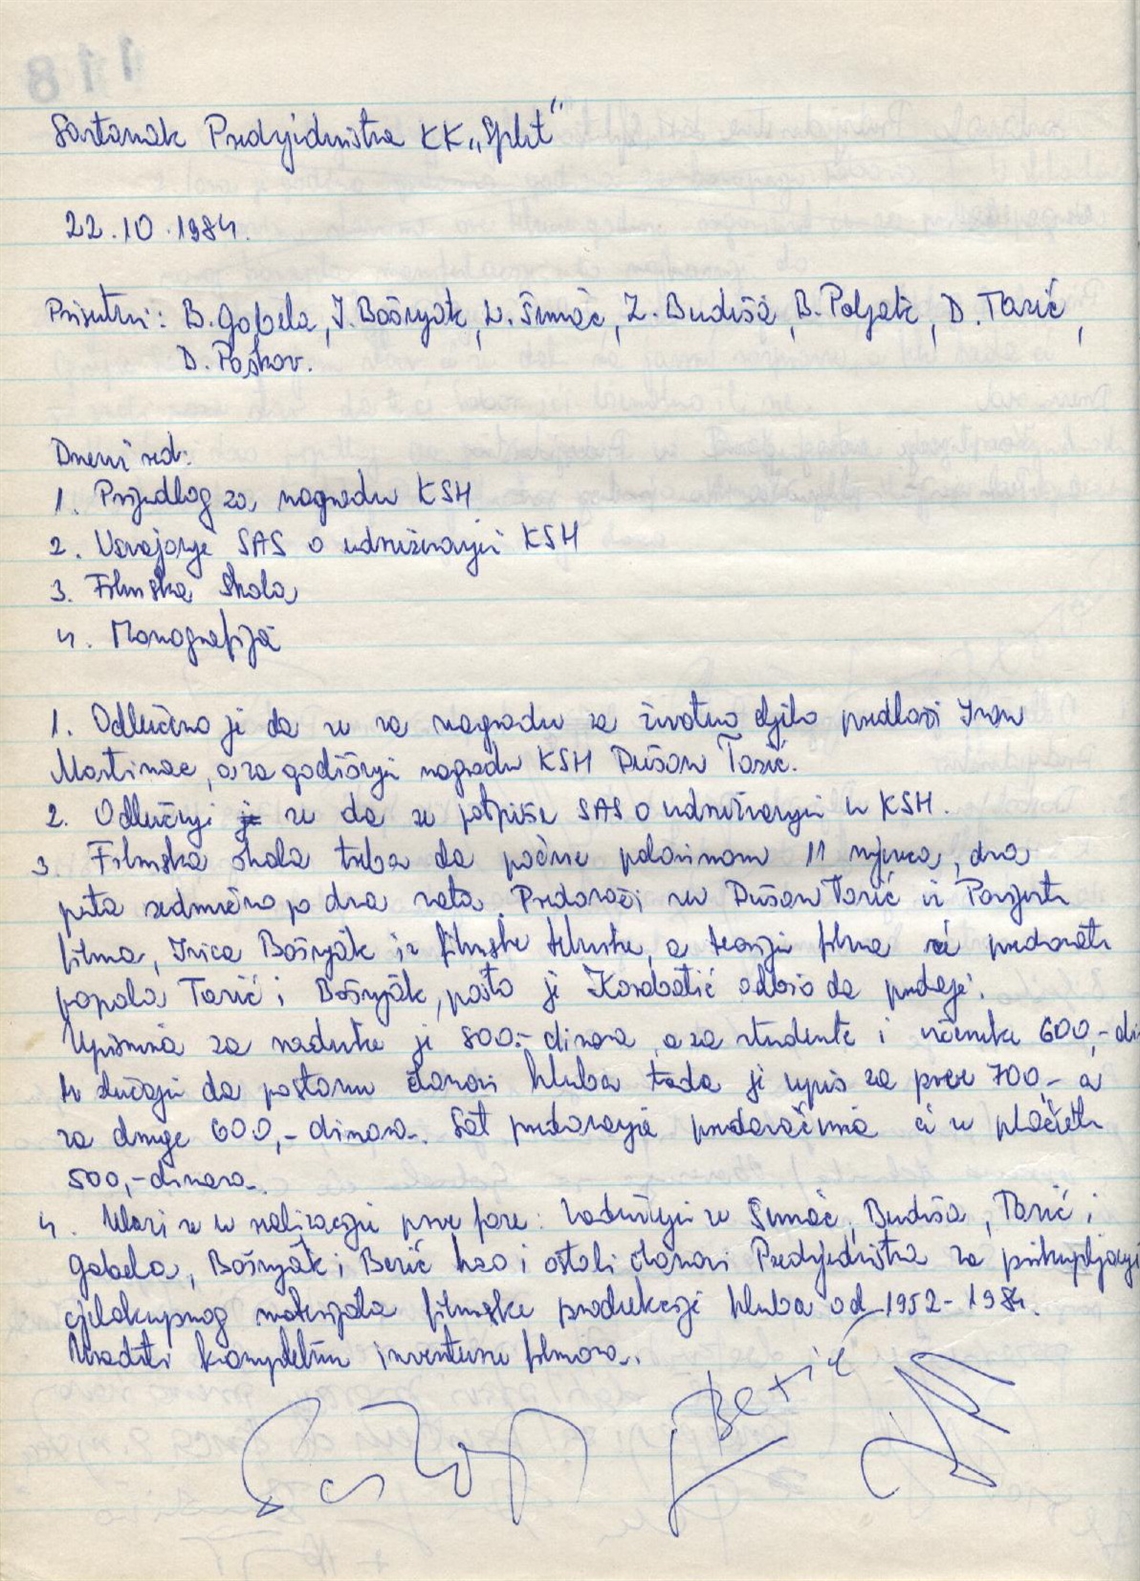 Sastanak Predsjedništva KK „Split"
22.10.1984.
Prisutni: B. Gabela, I. Bošnjak, L. Šimač, Z. Budiša, B. Poljak, D. Tasić,
D. Poškov.
Dnevni red:
1. Prijedlog za nagradu KSH
2. Usvajanje SAS o udruživanju KSH
3. Filmska škola
4. Monografija
1. Odlučeno je da se za nagradu za životno djelo predloži Ivan
Martinac, a za godišnju nagradu KSH Dušan Tasić.
2. Odlučuje je se da se potpiše SAS o udruživanju u KSH.
3. Filmska škola treba da počne polovinom 11 mjeseca, dva
puta sedmično po dva sata. Predavači su Dušan Tasić iz Povijesti
filma, Ivica Bošnjak iz filmske tehnike, a teoriju filma će predavati
popola Tasić i Bošnjak, pošto je Karabatić odbio da predaje.
Upisnina za nadutke je 800.- dinara, a za studente i učenike 600,- di
U slučaju da postanu članovi kluba tada je upis za prve 700,- a
za druge 600,- dinara. Sat predavanja predavačima će se plaćati
500,- dinara.
4. Ulazi se u realizaciju prve faze: Zadužuju se Šimač, Budiša, Tasić i
Gabela, Bošnjak i Berić kao i ostali članovi Predsjedništva za prikupljanje
cjelokupnog materijala filmske produkcije kluba od 1952-1984.
Uraditi kompletnu inventuru filmova.
118